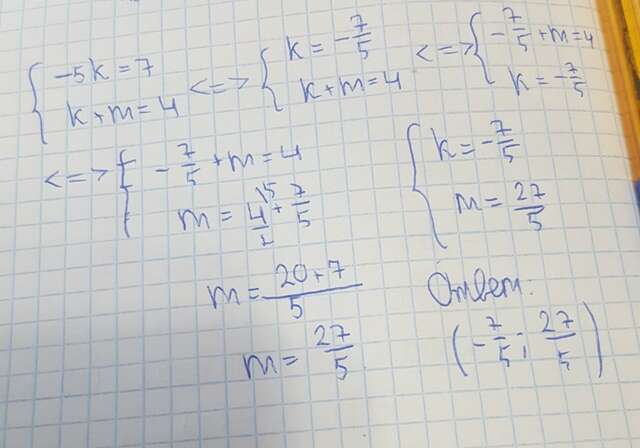 { -5k = 7
k + m = 4 <=> { k = -7/5
k + m = 4 <=> { -7/5 + m = 4
k = -7/5
<=> { -7/5 + m = 4
m = 4/1 + 7/5
m = (20 + 7)/5
m = 27/5
{ k = -7/5
m = 27/5
Ответ.
(-7/5; 27/5)